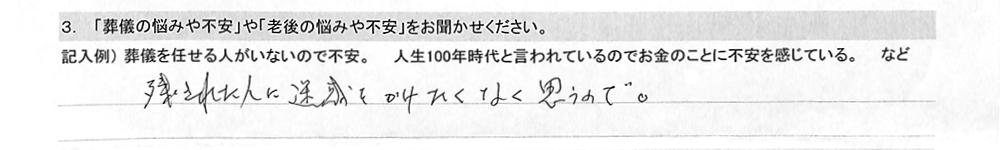 3. 「葬儀の悩みや不安」や「老後の悩みや不安」をお聞かせください。
記入例）葬儀を任せる人がいないので不安。　人生100年時代と言われているのでお金のことに不安を感じている。　など
残された人に迷惑をかけたくなく思うので。